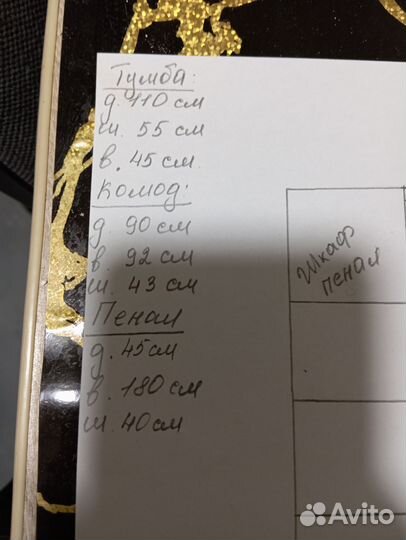 Тумба:
д. 110 см
ш. 55 см
в. 45 см
Комод:
д. 90 см
в. 92 см
ш. 43 см
Пенал
д. 45см
в. 180 см
ш. 40 см
Шкаф
пенал
Avito